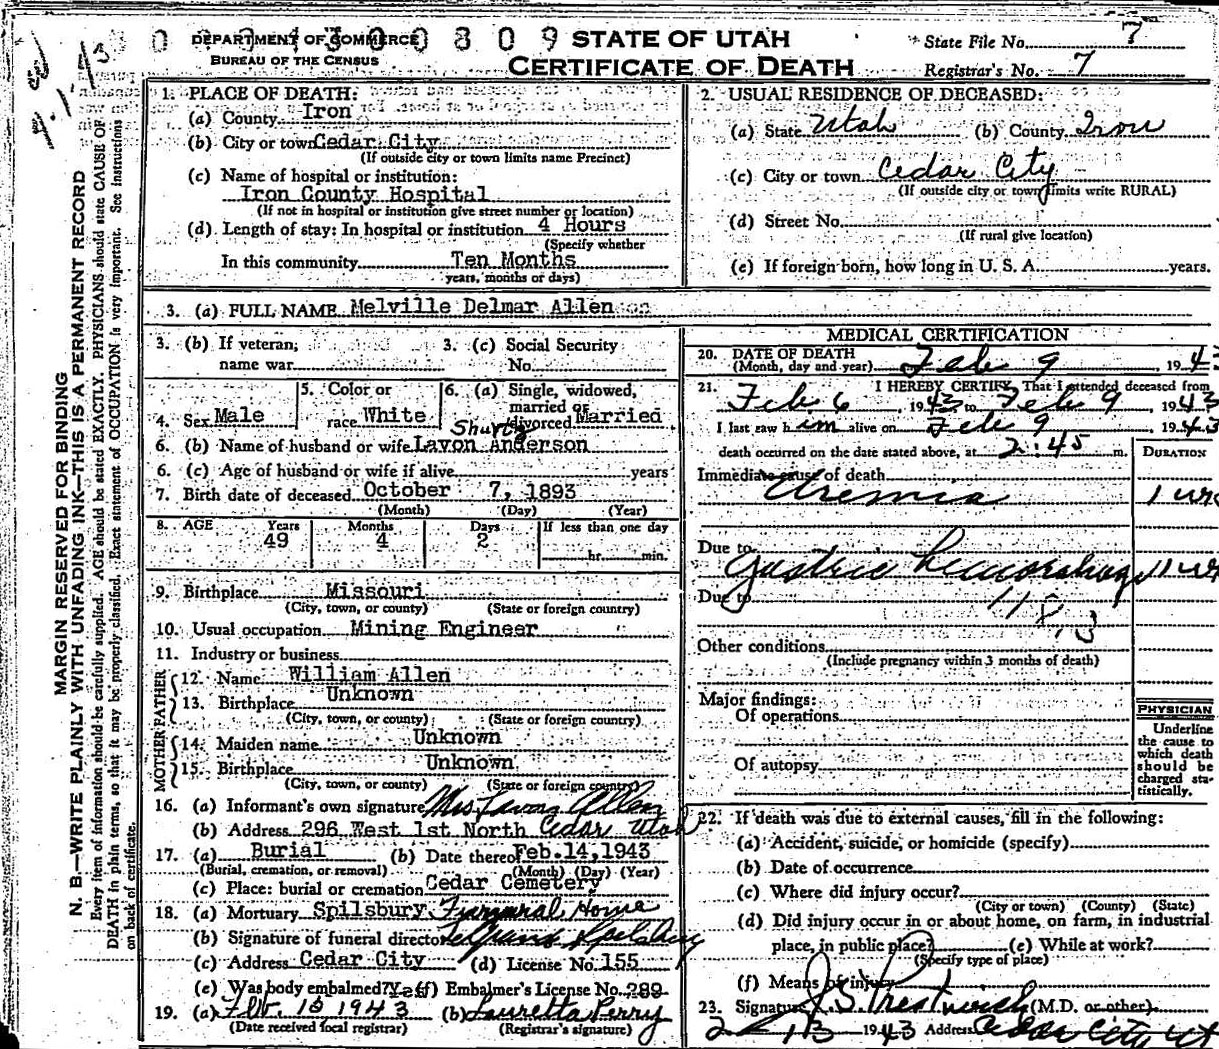 DEPARTMENT OF COMMERCE
BUREAU OF THE CENSUS
STATE OF UTAH
CERTIFICATE OF DEATH
State File No. 7
Registrar's No. 7
MARGIN RESERVED FOR BINDING
N. B.—WRITE PLAINLY WITH UNFADING INK—THIS IS A PERMANENT RECORD
Every item of information should be carefully supplied. AGE should be stated EXACTLY. PHYSICIANS should state CAUSE OF
DEATH in plain terms, so that it may be properly classified. Exact statement of OCCUPATION is very important. See instructions
on back of certificate.
1. PLACE OF DEATH:
(a) County Iron
(b) City or town Cedar City
(If outside city or town limits name Precinct)
(c) Name of hospital or institution:
Iron County Hospital
(If not in hospital or institution give street number or location)
(d) Length of stay: In hospital or institution 4 Hours
(Specify whether
In this community Ten Months
years, months or days)
2. USUAL RESIDENCE OF DECEASED:
(a) State Utah (b) County Iron
(c) City or town Cedar City
(If outside city or town limits write RURAL)
(d) Street No.
(If rural give location)
(e) If foreign born, how long in U. S. A. years.
3. (a) FULL NAME Melville Delmar Allen
3. (b) If veteran, name war
3. (c) Social Security No.
4. Sex Male
5. Color or race White
6. (a) Single, widowed, married or divorced Married
6. (b) Name of husband or wife Lavon Anderson
6. (c) Age of husband or wife if alive years
7. Birth date of deceased October 7, 1893
(Month) (Day) (Year)
8. AGE Years 49 Months 4 Days 2 If less than one day
hr. min.
9. Birthplace Missouri
(City, town, or county) (State or foreign country)
10. Usual occupation Mining Engineer
11. Industry or business
FATHER
12. Name William Allen
13. Birthplace Unknown
(City, town, or county) (State or foreign country)
MOTHER
14. Maiden name Unknown
15. Birthplace Unknown
(City, town, or county) (State or foreign country)
16. (a) Informant's own signature Mrs Lavon Allen
(b) Address 296 West 1st North Cedar Utah
17. (a) Burial (b) Date thereof Feb.14,1943
(Burial, cremation, or removal) (Month) (Day) (Year)
(c) Place: burial or cremation Cedar Cemetery
18. (a) Mortuary Spilsbury Funeral Home
(b) Signature of funeral director Spilsbury
(c) Address Cedar City (d) License No. 155
(e) Was body embalmed? Yes (f) Embalmer's License No. 289
19. (a) Feb. 1943 (b) Lauretta Perry
(Date received local registrar) (Registrar's signature)
MEDICAL CERTIFICATION
20. DATE OF DEATH
(Month, day and year) Feb 9 1943
21. I HEREBY CERTIFY, That I attended deceased from
Feb 6, 1943 to Feb 9, 1943
I last saw him alive on Feb 9, 1943
death occurred on the date stated above, at 2:45 m.
DURATION
Immediate cause of death
Uremia 1 wk
Due to Gastric Hemorrhage 1 wk
Due to
Other conditions
(Include pregnancy within 3 months of death)
Major findings:
Of operations
Of autopsy
PHYSICIAN
Underline
the cause to
which death
should be
charged sta-
tistically.
22. If death was due to external causes, fill in the following:
(a) Accident, suicide, or homicide (specify)
(b) Date of occurrence
(c) Where did injury occur?
(City or town) (County) (State)
(d) Did injury occur in or about home, on farm, in industrial
place, in public place? (e) While at work?
(Specify type of place)
(f) Means of injury
23. Signature J. S. Prestwich (M.D. or other)
2-13 1943 Address Cedar City Ut